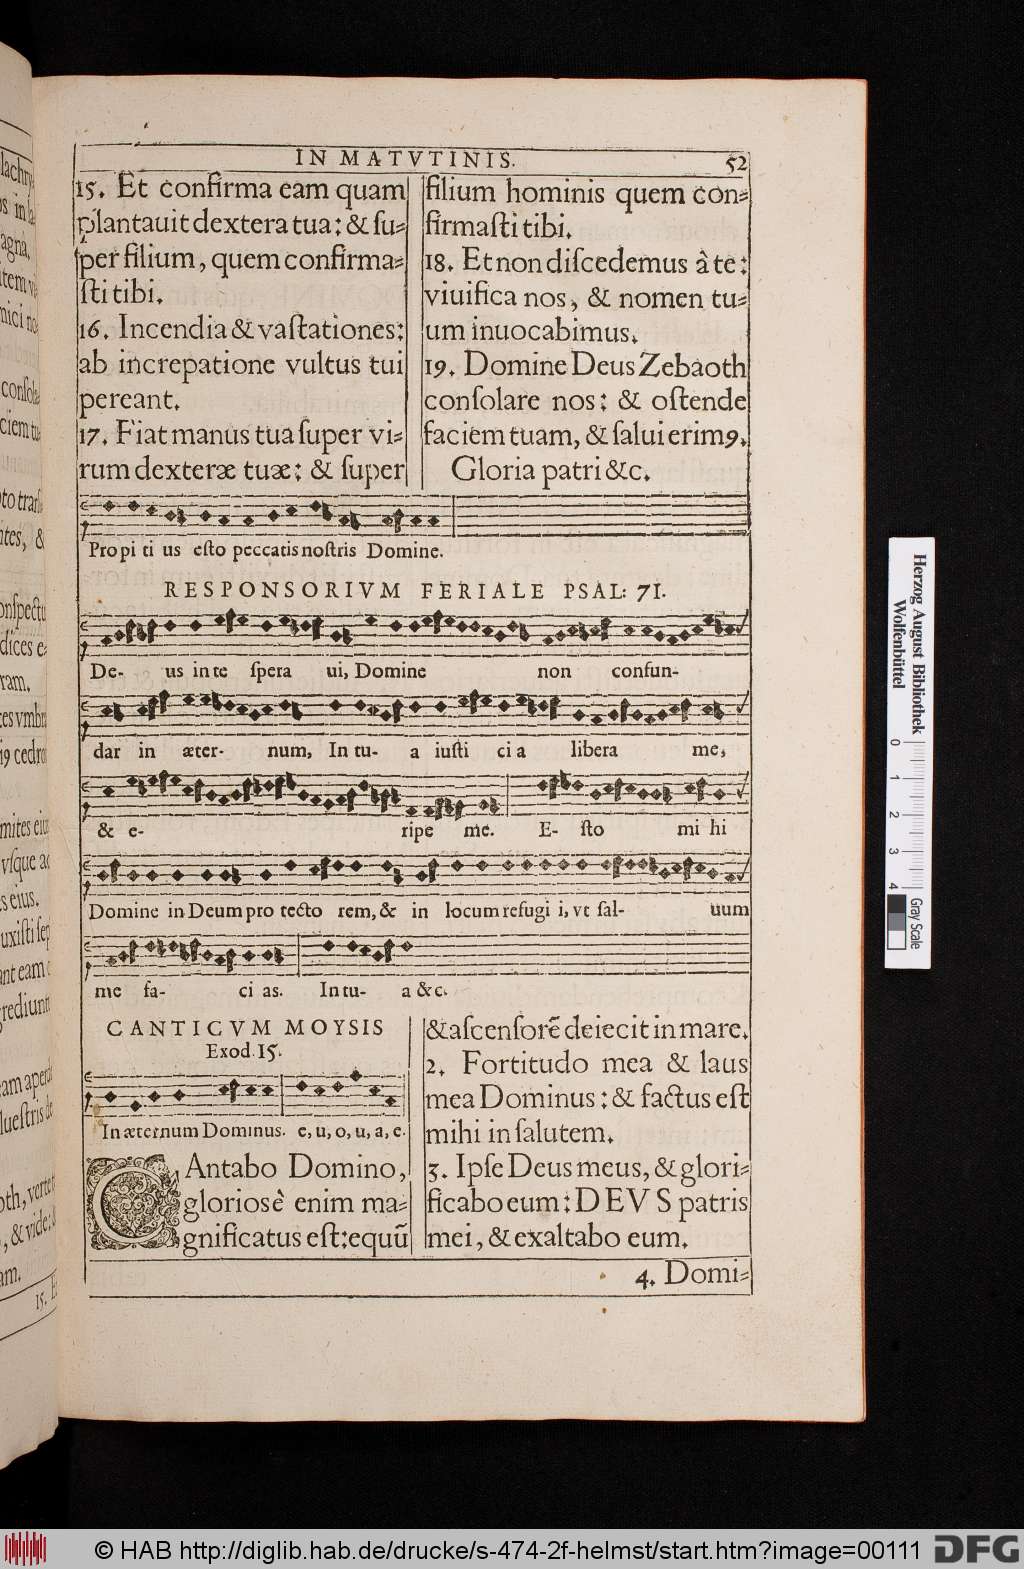 IN MATVTINIS.
52
15. Et confirma eam quam
plantauit dextera tua: & ſu-
per filium, quem confirma-
ſti tibi.
16. Incendia & vaſtationes:
ab increpatione vultus tui
pereant.
17. Fiat manus tua ſuper vi-
rum dexteræ tuæ: & ſuper
filium hominis quem con-
firmaſti tibi.
18. Et non diſcedemus à te:
viuifica nos, & nomen tu-
um inuocabimus.
19. Domine Deus Zebaoth
conſolare nos: & oſtende
faciem tuam, & ſalui erimꝰ.
Gloria patri &c.
Propi ti us eſto peccatis noſtris Domine.
RESPONSORIVM FERIALE PSAL: 71.
De- us in te ſpera ui, Domine non confun-
dar in æter- num, In tu- a iuſti ci a libera me,
& e- ripe me. E- ſto mi hi
Domine in Deum pro tecto rem, & in locum refugi i, vt ſal- uum
me fa- ci as. In tu- a & c.
CANTICVM MOYSIS
Exod. 15.
In æternum Dominus. e, u, o, u, a, e.
CAntabo Domino,
glorioſè enim ma-
gnificatus eſt: equū
& aſcenſorē deiecit in mare.
2. Fortitudo mea & laus
mea Dominus: & factus eſt
mihi in ſalutem.
3. Ipſe Deus meus, & glori-
ficabo eum: DEVS patris
mei, & exaltabo eum.
4. Domi-
Herzog August Bibliothek
Wolfenbüttel
0 1 2 3 4
Gray Scale
© HAB http://diglib.hab.de/drucke/s-474-2f-helmst/start.htm?image=00111
DFG